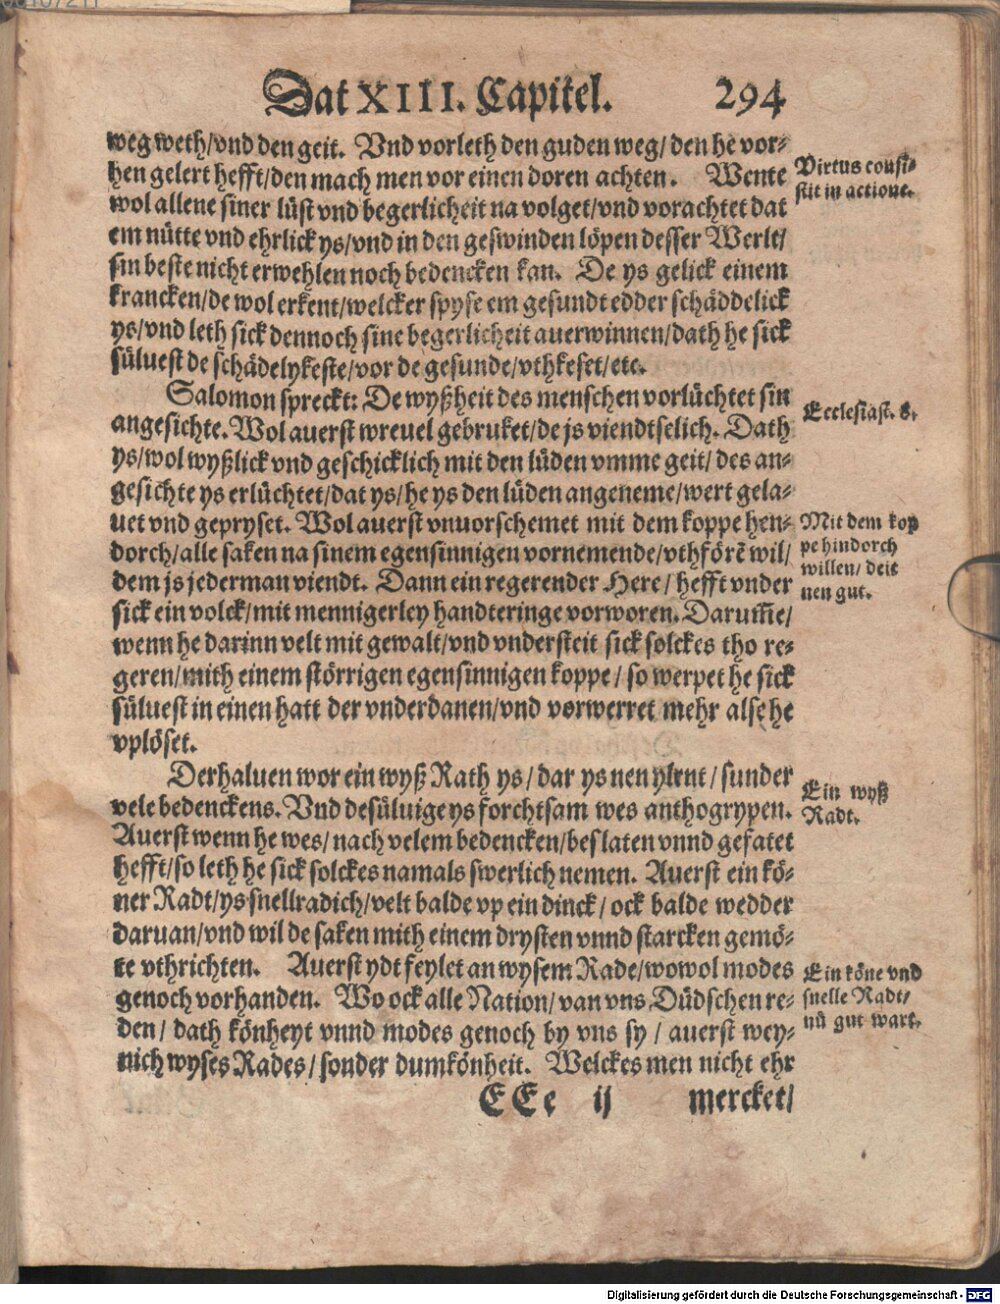 Dat XIII. Capitel. 294
weg weth/vnd den geit. Vnd vorleth den guden weg/den he vor-
hen gelert hefft/den mach men vor einen doren achten. Wente
wol allene siner lüst vnd begerlicheit na volget/vnd vorachtet dat
em nütte vnd ehrlick ys/vnd in den geswinden löpen desser Werlt/
sin beste nicht erwehlen noch bedencken kan. De ys gelick einem
krancken/de wol erkent/welcker spyse em gesundt edder schäddelick
ys/vnd leth sick dennoch sine begerlicheit auerwinnen/dath he sick
süluest de schädelykeste/vor de gesunde/vthkeset/etc.
Virtus consi-
stit in actione.
Salomon spreckt: De wyßheit des menschen vorlüchtet sin
angesichte. Wol auerst wreuel gebruket/de js viendtselich. Dath
ys/wol wyßlick vnd geschicklich mit den lüden vmme geit/des an-
gesichte ys erlüchtet/dat ys/he ys den lüden angeneme/wert gela-
uet vnd gepryset. Wol auerst vnuorschemet mit dem koppe hen-
dorch/alle saken na sinem egensinnigen vornemende/vthförẽ wil/
dem js jederman viendt. Dann ein regerender Here/hefft vnder
sick ein volck/mit mennigerley handteringe vorworen. Darum̃e/
wenn he darinn velt mit gewalt/vnd vndersteit sick solckes tho re-
geren/mith einem störrigen egensinnigen koppe/so werpet he sick
süluest in einen hatt der vnderdanen/vnd vorwerret mehr alse he
vplöset.
Ecclesiast. 8.
Mit dem kop
pe hindorch
willen/deit
nen gut.
Derhaluen wor ein wyß Rath ys/dar ys nen ylent/sunder
vele bedenckens. Vnd desüluige ys forchtsam wes anthogrypen.
Auerst wenn he wes/nach velem bedencken/beslaten vnnd gefatet
hefft/so leth he sick solckes namals swerlich nemen. Auerst ein kö-
ner Radt/ys snellradich/velt balde vp ein dinck/ock balde wedder
daruan/vnd wil de saken mith einem drysten vnnd starcken gemö-
te vthrichten. Auerst ydt feylet an wysem Rade/wowol modes
genoch vorhanden. Wo ock alle Nation/van vns Düdschen re-
den/dath könheyt vnnd modes genoch by vns sy/auerst wey-
nich wyses Rades/sonder dumkönheit. Welckes men nicht ehr
Ein wyß
Radt.
Ein köne vnd
snelle Radt/
nü gut wart.
EEe ij mercket/
Digitalisierung gefördert durch die Deutsche Forschungsgemeinschaft - DFG